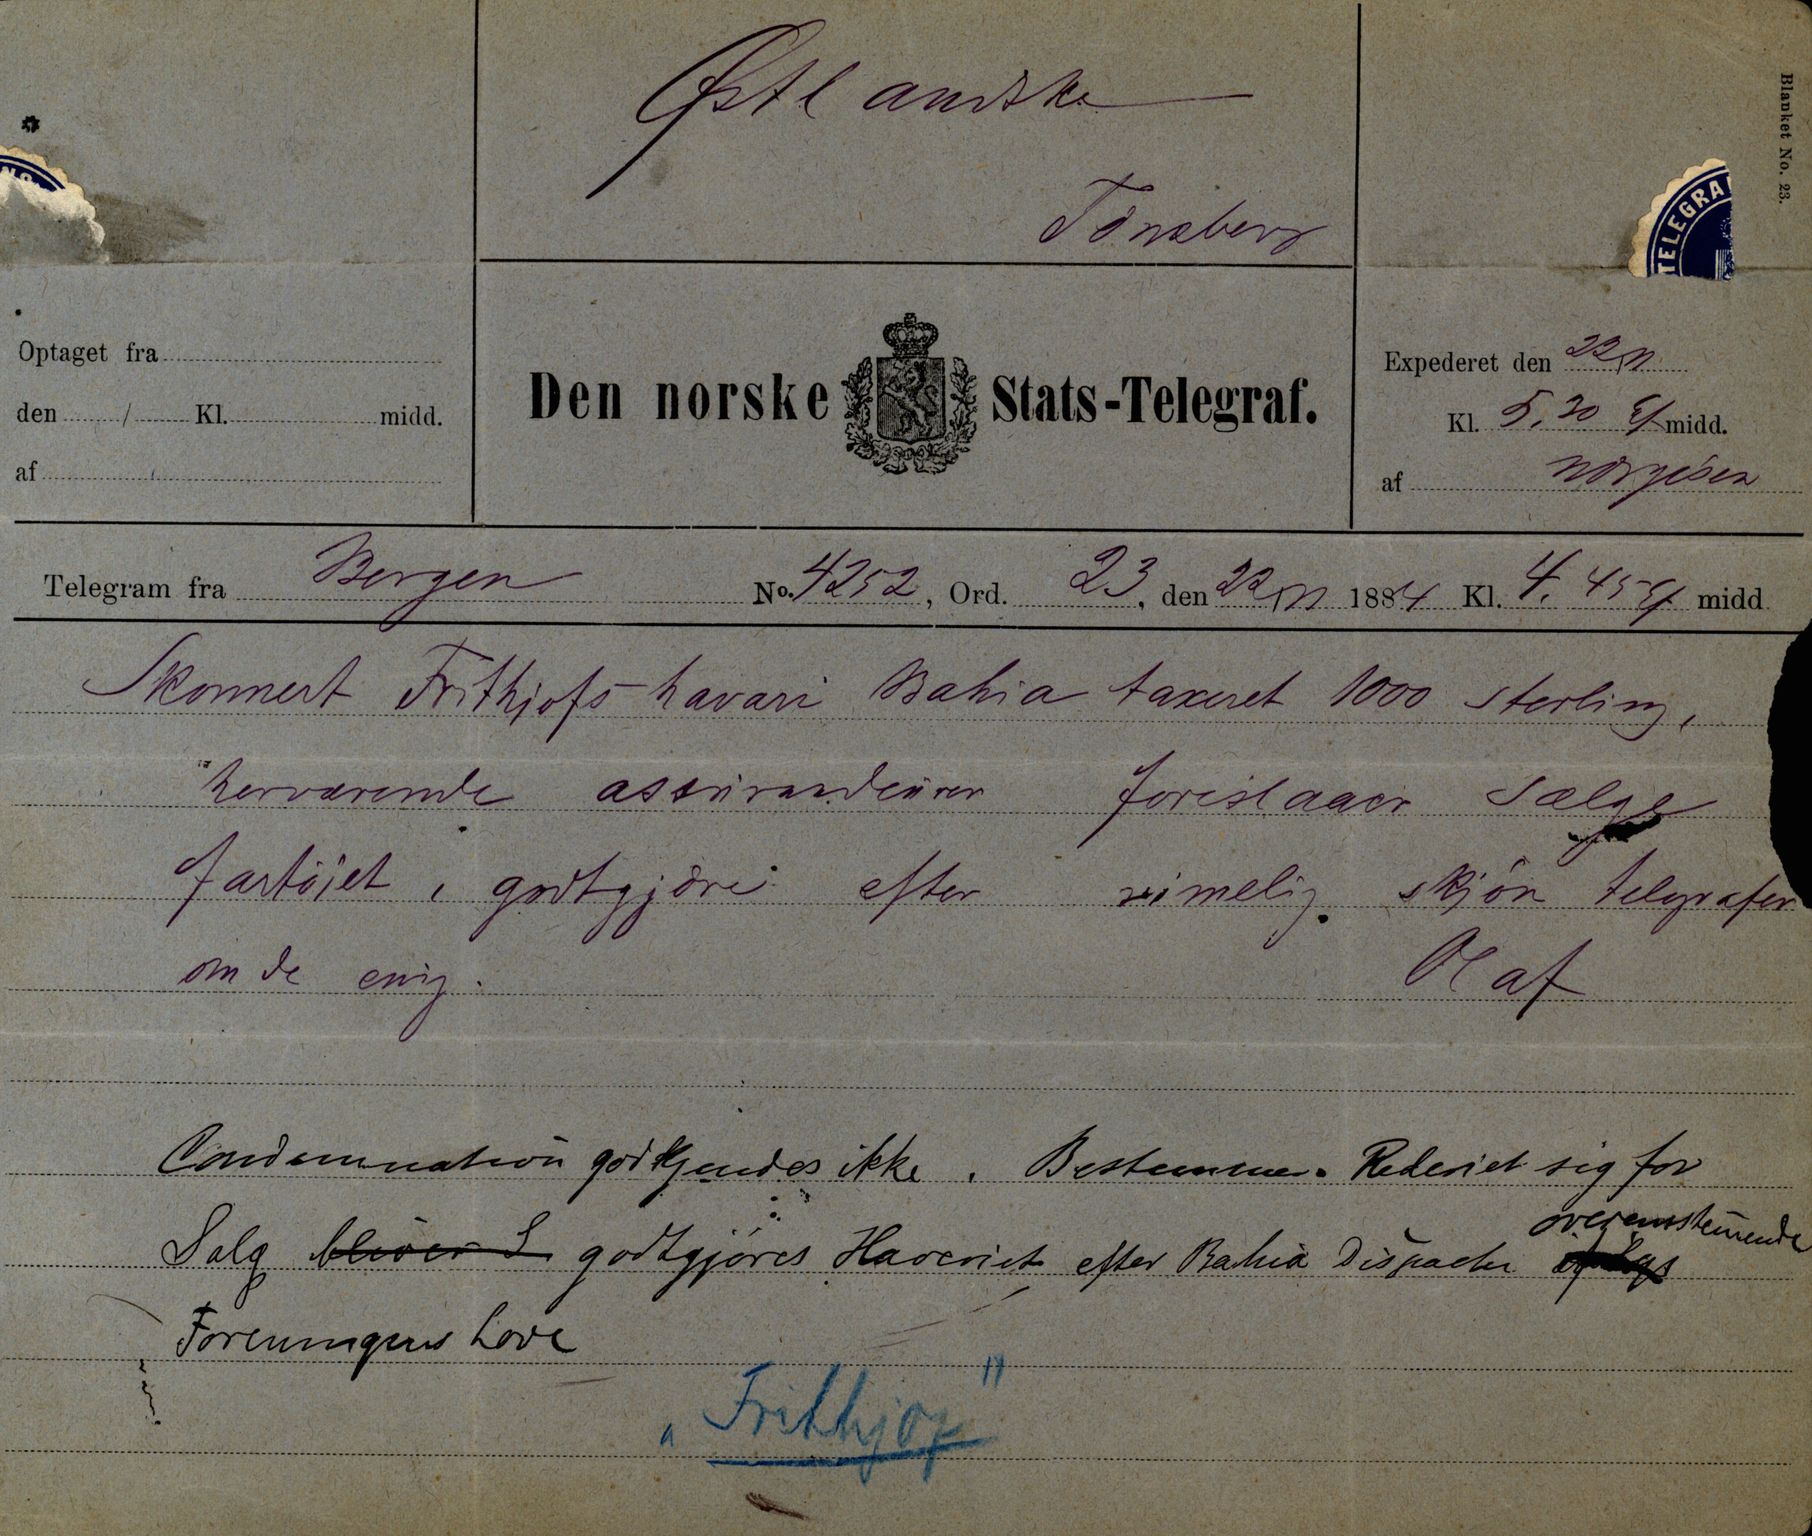 Østlandske
Tönsberg
Blanket No. 23.
TELEGRA
Optaget fra
den / Kl. midd.
af
Den norske Stats-Telegraf.
Expederet den 22/11
Kl. 5,20 Ef midd.
af
Telegram fra Bergen No. 4252, Ord. 23, den 22/11 1884 Kl. 4.45 Ef midd
Skonnert Frithjofs havari Bahia taxeret 1000 sterling,
herværende assurandeurer foreslaaer sælge
fartöiet, godtgjöre efter rimelig skjön telegrafer
om de enig. Olaf
Condemnation godkjendes ikke. Bestemmer Rederiet sig for
Salg bliver S godtgjöres Haveriet efter Bahia Dispache overensstemmende
Foreningens Love
"Frithjof"